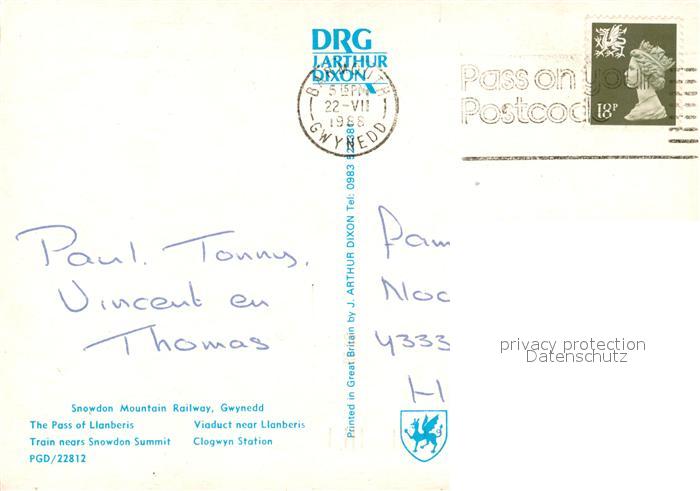 DRG
J.ARTHUR
DIXON
BARMOUTH
5 15PM
22-VII
1988
GWYNEDD
Pass on your
Postcode
18P
Paul. Tonny.
Vincent en
Thomas
Fam
4333
H
Printed in Great Britain by J. ARTHUR DIXON Tel: 0983
privacy protection
Datenschutz
Snowdon Mountain Railway, Gwynedd
The Pass of Llanberis Viaduct near Llanberis
Train nears Snowdon Summit Clogwyn Station
PGD/22812